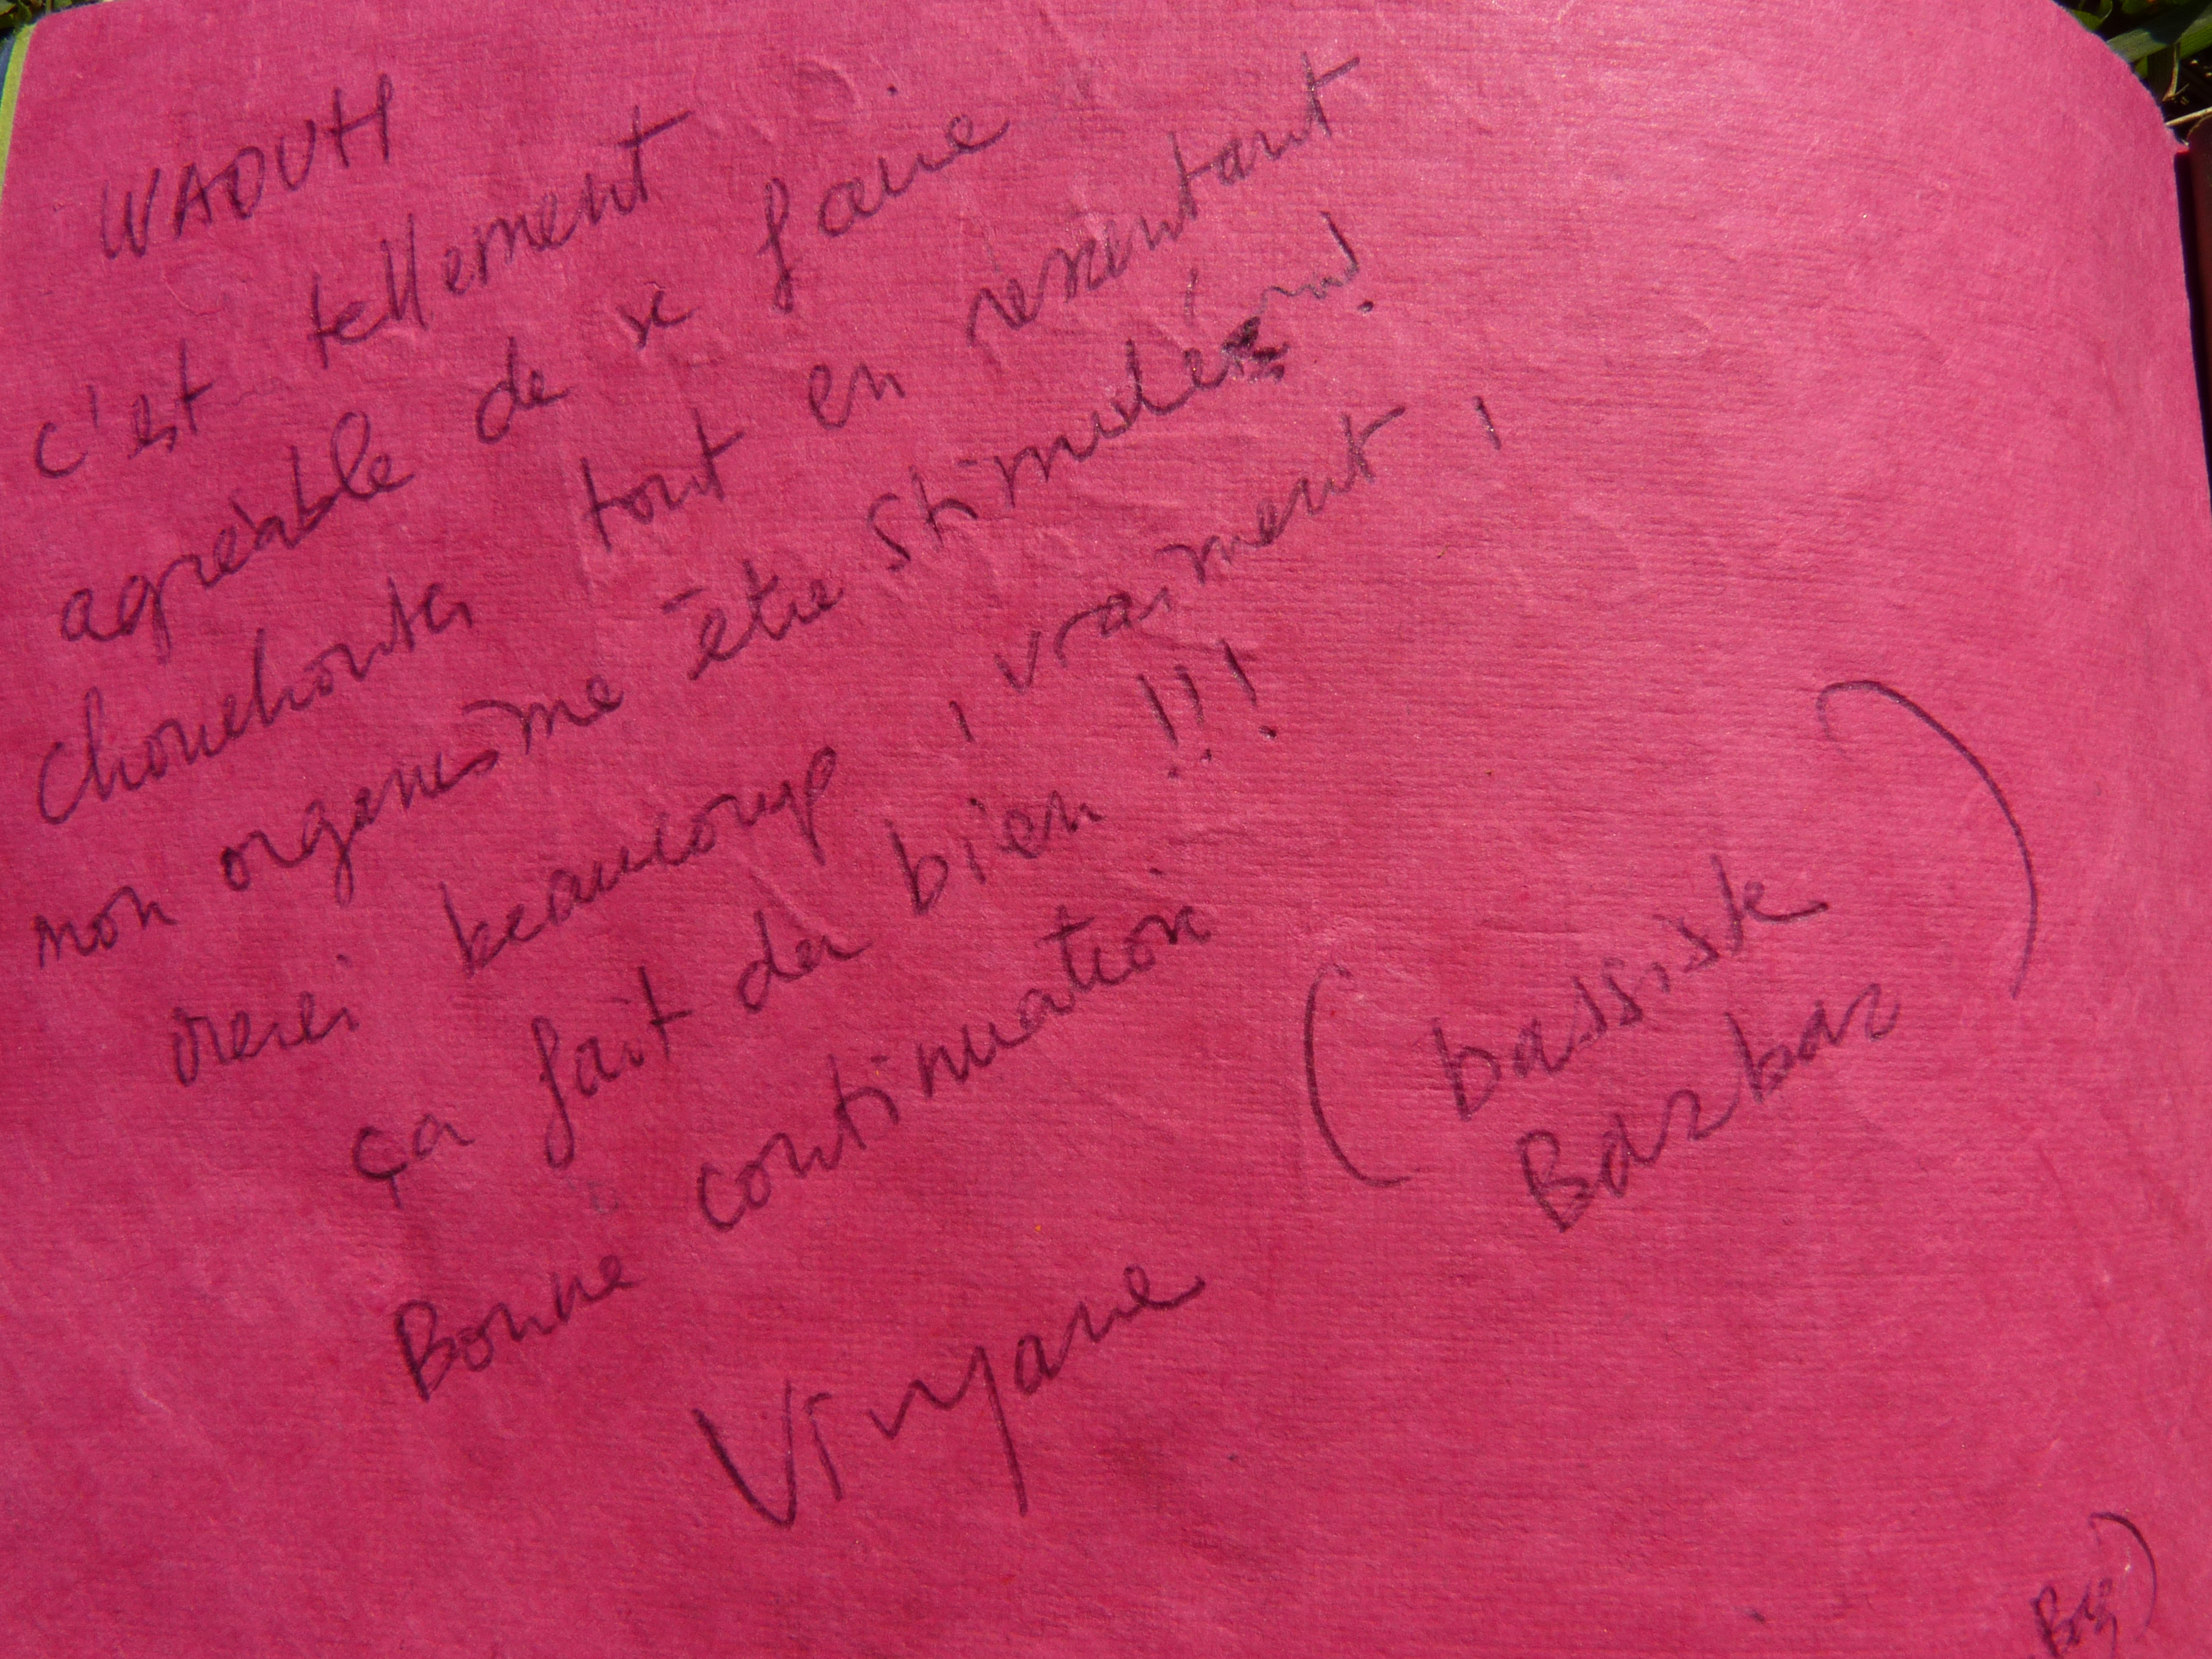 WAOUH
c'est tellement
agréable de se faire
chouchouter tout en ressentant
mon organisme être stimulé
merci beaucoup, vraiment,
ça fait du bien !!!
Bonne continuation
(bassiste
Barbar)